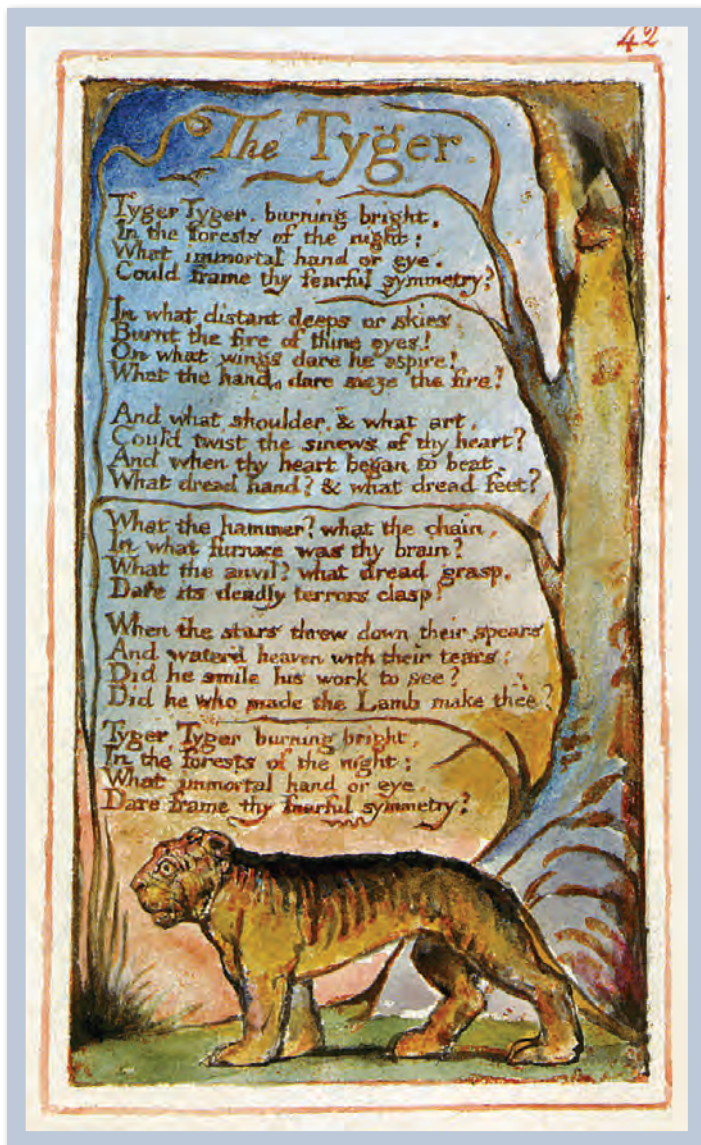 42
The Tyger.
Tyger Tyger, burning bright,
In the forests of the night:
What immortal hand or eye,
Could frame thy fearful symmetry?
In what distant deeps or skies
Burnt the fire of thine eyes!
On what wings dare he aspire!
What the hand, dare sieze the fire?
And what shoulder, & what art,
Could twist the sinews of thy heart?
And when thy heart began to beat,
What dread hand? & what dread feet?
What the hammer? what the chain,
In what furnace was thy brain?
What the anvil? what dread grasp,
Dare its deadly terrors clasp!
When the stars threw down their spears
And water'd heaven with their tears:
Did he smile his work to see?
Did he who made the Lamb make thee?
Tyger Tyger burning bright,
In the forests of the night:
What immortal hand or eye,
Dare frame thy fearful symmetry?